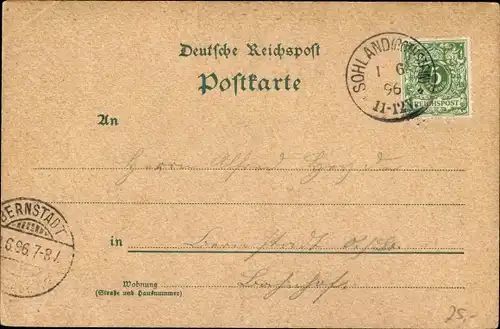 Deutsche Reichspost
Postkarte
SOHLAND
1 6
96
11-12V
5
REICHSPOST
An
Herrn Alfred
BERNSTADT
6.96.7-8
in Bernstadt
Bahnhof
Wohnung
(Straße und Hausnummer)
25,-